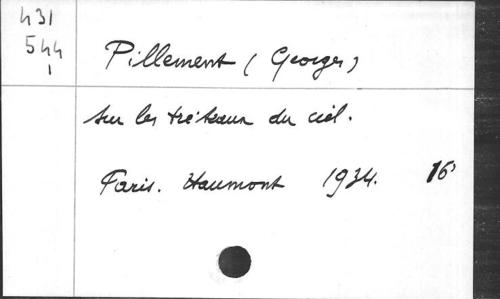 431
544
1
Pillement (Georges)
Sur les tréteaux du ciel.
Paris. Haumont 1934. 16°